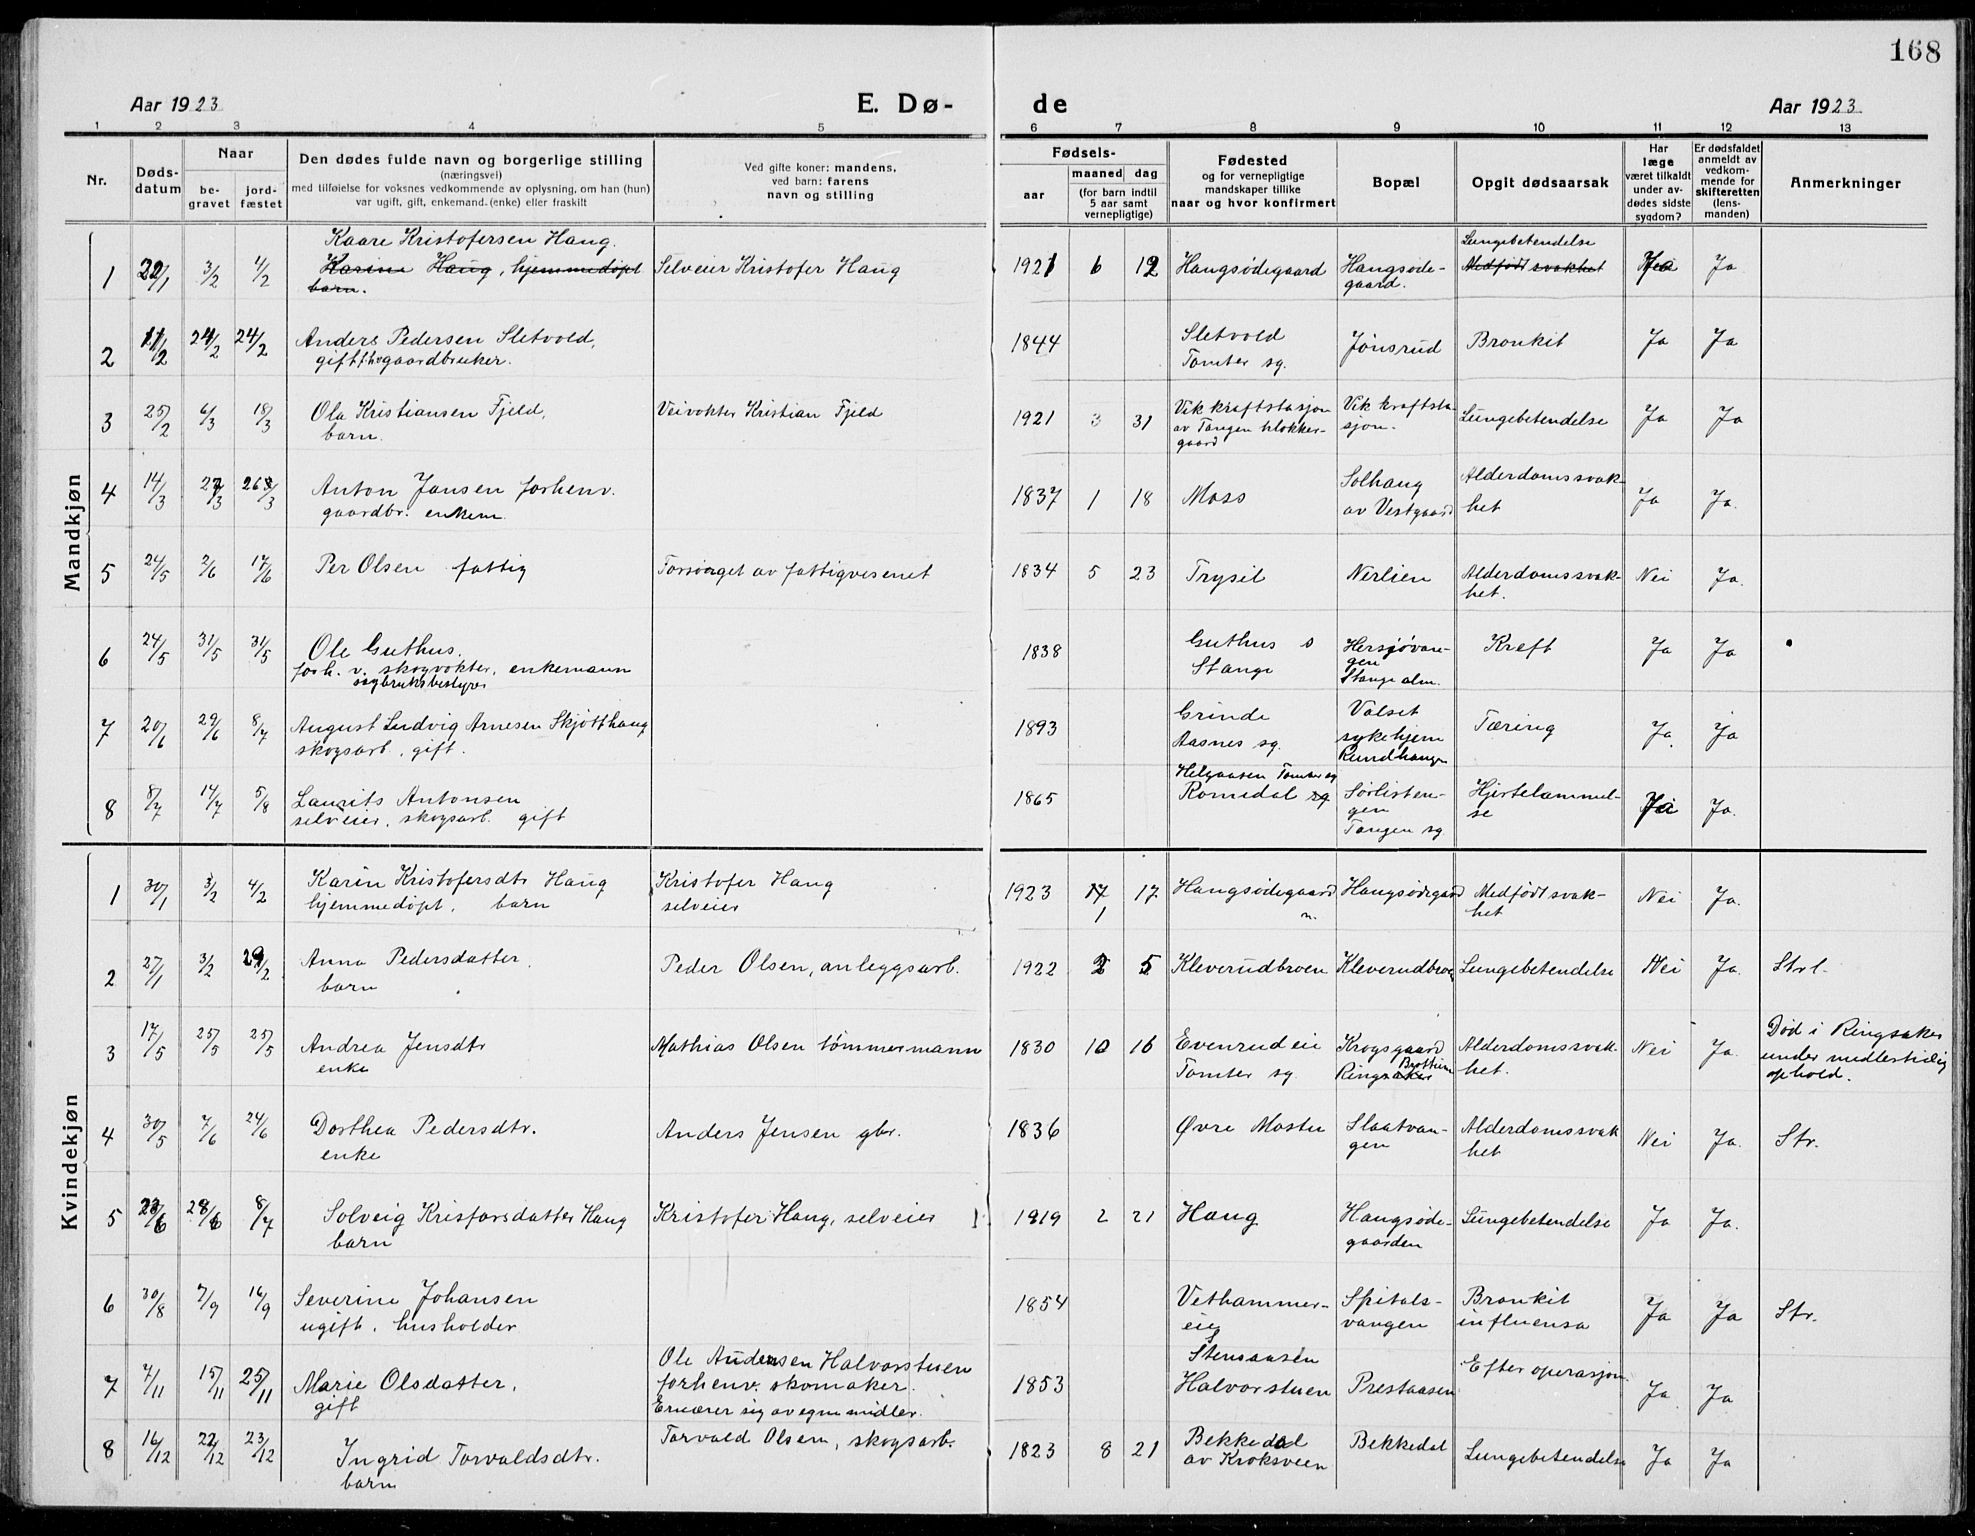 168
Aar 1923
E. Dø-
de
Aar 1923
1 2 3 4 5 6 7 8 9 10 11 12 13
Nr.
Døds-
datum
Naar
be-
gravet
jord-
fæstet
Den dødes fulde navn og borgerlige stilling
(næringsvei)
med tilføielse for voksnes vedkommende av oplysning, om han (hun)
var ugift, gift, enkemand (enke) eller fraskilt
Ved gifte koner: mandens,
ved barn: farens
navn og stilling
Fødsels-
aar
maaned dag
(for barn indtil
5 aar samt
vernepligtige)
Fødested
og for vernepligtige
mandskaper tillike
naar og hvor konfirmert
Bopæl
Opgit dødsaarsak
Har
læge
været tilkaldt
under av-
dødes sidste
sygdom?
Er dødsfaldet
anmeldt av
vedkom-
mende for
skifteretten
(lens-
manden)
Anmerkninger
Mandkjøn
Kaare Kristofersen Haug. Lungebetendelse
1 22/1 3/2 4/2 Karine Haug, hjemmedøpt Selveier Kristofer Haug 1921 6 12 Haugsødegaard Haugsøde- Medfødt svakhet Ja Ja
barn. gaard.
2 11/2 24/2 24/2 Anders Pedersen Sletvold, 1844 Sletvold Jønsrud Bronkit Ja Ja
gift, gaardbruker. Tomter sg.
3 25/2 6/3 18/3 Ola Kristiansen Fjeld, Veivokter Kristian Fjeld 1921 3 31 Vik kraftstasjon Vik kraftsta- Lungebetendelse Ja Ja
barn. av Tangen klokker- sjon.
gaard
4 14/3 27/3 26/3 Anton Jansen forhenv. 1837 1 18 Moss Solhaug Alderdomssvak- Ja Ja.
gaardbr. enkem. av Vestgaard het
5 24/5 2/6 17/6 Per Olsen fattig Forsørget av fattigvesenet 1834 5 23 Trysil Nerlien Alderdomssvak- Nei Ja.
het.
6 24/5 31/5 31/5 Ole Guthus. 1838 Guthus Hersjøvan- Kreft Ja Ja
forh. v. skogvokter, enkemann Stange gen
sagbruksbestyrer Stange alm.
7 20/6 29/6 8/7 August Ludvig Arnesen Skjøtthaug 1893 Grinde Valset Tæring Ja. Ja
skogsarb., gift. Aasnes sg. sykehjem
Rundhaugen
Helgaasen Tomter sg
8 8/7 14/7 5/8 Laurits Antonsen 1865 Romedal sg Sørlisten- Hjertelammel- Ja Ja.
selveier, skogsarb. gift gen se
Tangen sg.
Kvindekjøn
1 30/1 3/2 4/2 Karin Kristofersdtr Haug Kristofer Haug 1923 17 17 Haugsødegaard Haugsødegaard Medfødt svak- Nei Ja.
hjemmedøpt, barn selveier 1 n. het
2 27/1 3/2 29/2 Anna Pedersdatter, Peder Olsen, anleggsarb. 1922 2 5 Kleverudbroen Kleverudbroen Lungebetendelse Nei Ja. Strl.
barn
3 17/5 25/5 25/5 Andrea Jensdtr Mathias Olsen tømmermann 1830 10 16 Evenrud eie Krogsgaard Alderdomssvak- Nei Ja. Død i Ringsaker
enke Tomter sg. Brøttum het. under midlertidig
Ringsaker ophold.
4 30/5 7/6 24/6 Dorthea Pedersdtr. Anders Jensen gbr. 1836 Øvre Mostu Slaatvan- Alderdomssvak Nei Ja. Str.
enke gen het
5 23/6 28/6 8/7 Solveig Krisforsdatter Haug Kristofer Haug, selveier 1919 2 21 Haug Haugsøde- Lungebetendelse Ja Ja.
barn gaarden
6 30/8 7/9 16/9 Severine Johansen 1854 Vethammer- Spitals- Bronkit Ja Ja Str.
ugift, husholder eie vangen influensa
7 7/11 15/11 25/11 Marie Olsdatter, Ole Andersen Halvorstuen 1853 Stensaasen Prestaasen Efter operasjon Ja Ja
gift forhenv. skomaker. Halvorstuen
Ernærer sig av egne midler.
8 16/12 22/12 23/12 Ingrid Torvaldsdtr. Torvald Olsen, skogsarb. 1823 8 21 Bekkedal Bekkedal Lungebetendelse Ja Ja
barn av Kroksveen